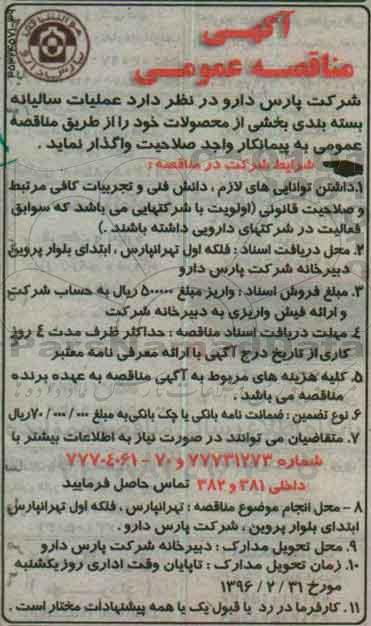 آگهی
مناقصه عمومی
شرکت پارس دارو در نظر دارد عملیات سالیانه
بسته بندی بخشی از محصولات خود را از طریق مناقصه
عمومی به پیمانکار واجد صلاحیت واگذار نماید .
شرایط شرکت در مناقصه :
۱.داشتن توانایی های لازم ، دانش فنی و تجربیات کافی مرتبط
و صلاحیت قانونی (اولویت با شرکتهایی می باشد که سوابق
فعالیت در شرکتهای دارویی داشته باشند .)
۲. محل دریافت اسناد : فلکه اول تهرانپارس ، ابتدای بلوار پروین
دبیرخانه شرکت پارس دارو
۳. مبلغ فروش اسناد : واریز مبلغ ۵۰۰۰۰۰ ریال به حساب شرکت
و ارائه فیش واریزی به دبیرخانه شرکت
۴. مهلت دریافت اسناد مناقصه : حداکثر ظرف مدت ۴ روز
کاری از تاریخ درج آگهی با ارائه معرفی نامه معتبر
۵. کلیه هزینه های مربوط به آگهی مناقصه به عهده برنده
مناقصه می باشد .
۶. نوع تضمین : ضمانت نامه بانکی یا چک بانکی به مبلغ ۷۰/۰۰۰/۰۰۰ریال
۷. متقاضیان می توانند در صورت نیاز به اطلاعات بیشتر با
شماره ۷۷۷۳۱۲۷۳ و ۷۰ - ۷۷۷۰۴۰۶۱
داخلی ۳۸۱ و ۳۸۲ تماس حاصل فرمایید
۸ - محل انجام موضوع مناقصه : تهرانپارس ، فلکه اول تهرانپارس
ابتدای بلوار پروین ، شرکت پارس دارو .
۹. محل تحویل مدارک : دبیرخانه شرکت پارس دارو
۱۰. زمان تحویل مدارک : تا پایان وقت اداری روز یکشنبه
مورخ ۳۱ / ۲ / ۱۳۹۶
۱۱. کارفرما در رد یا قبول یک یا همه پیشنهادات مختار است .